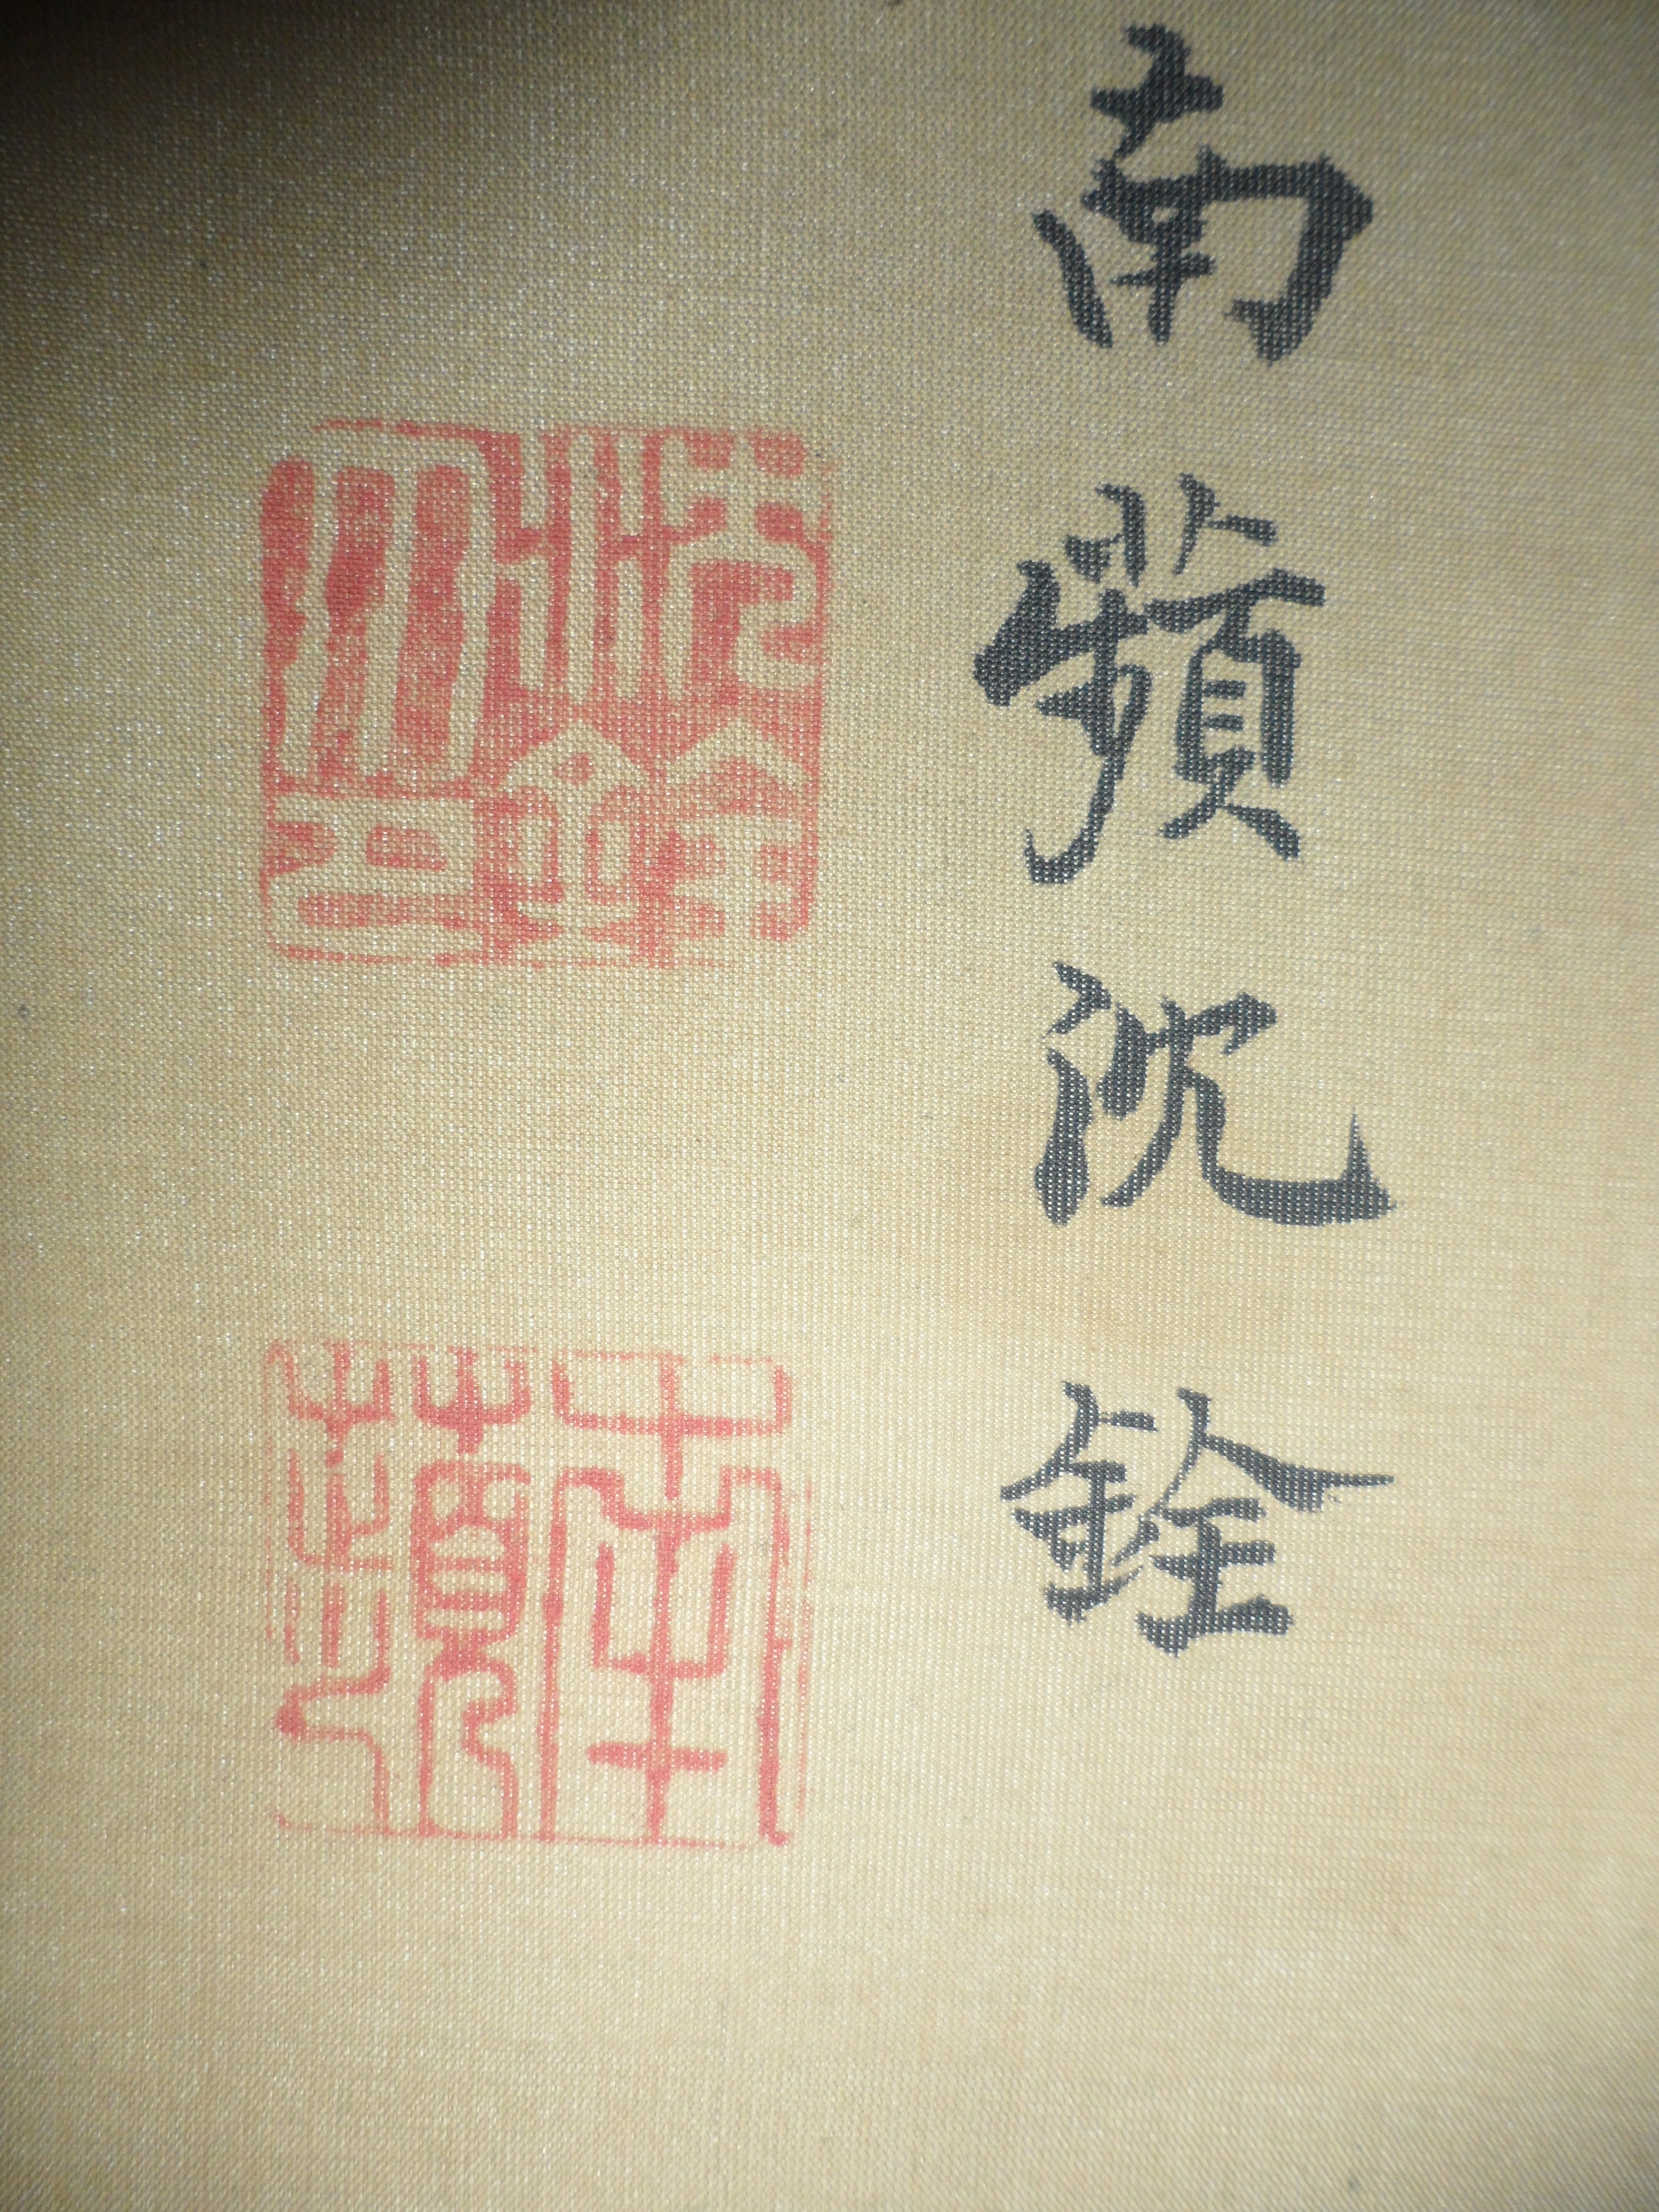 南蘋沈銓
沈銓印
南蘋